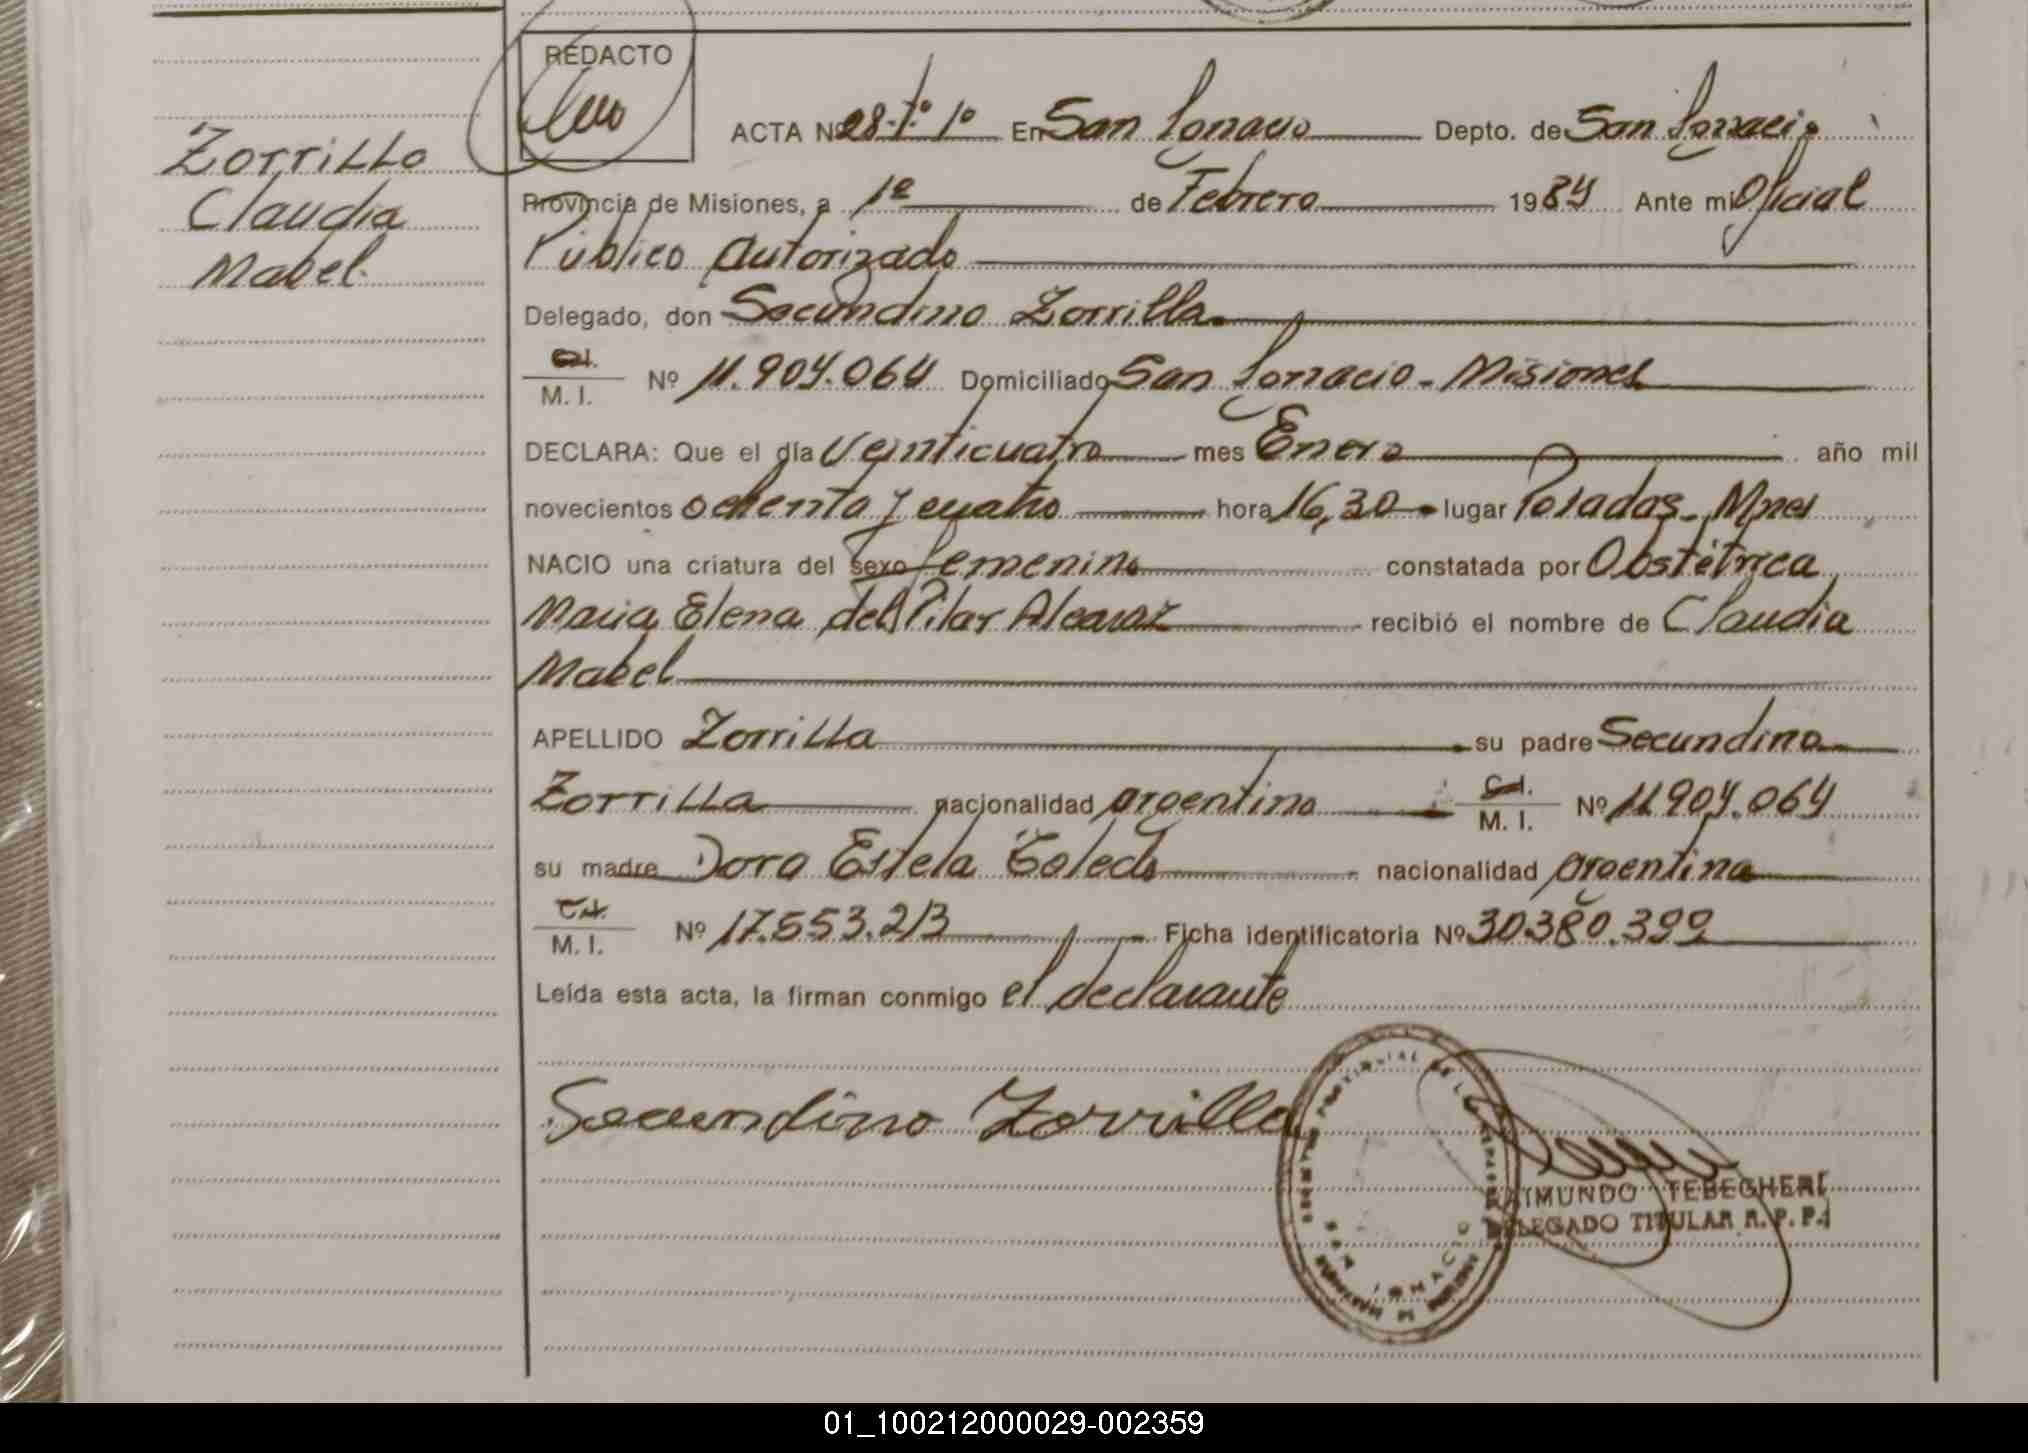 Zorrilla
Claudia
Mabel
REDACTO
ACTA Nº 28-Tº 1º En San Ignacio Depto. de San Ignacio
Provincia de Misiones, a 1º de Febrero 1984 Ante mi Oficial
Público Autorizado
Delegado, don Secundino Zorrilla
C.I.
M. I. Nº 11.904.064 Domiciliado San Ignacio - Misiones
DECLARA: Que el día Veinticuatro mes Enero año mil
novecientos ochenta y cuatro hora 16,30 lugar Posadas - Mnes
NACIO una criatura del sexo femenino constatada por Obstétrica
Maria Elena del Pilar Alcaraz recibió el nombre de Claudia
Mabel
APELLIDO Zorrilla su padre Secundino
Zorrilla nacionalidad argentino C.I.
M. I. Nº 11.904.064
su madre Dora Estela Toledo nacionalidad argentina
C.I.
M. I. Nº 17.553.213 Ficha identificatoria Nº 30.380.399
Leída esta acta, la firman conmigo el declarante
Secundino Zorrilla
RAIMUNDO TEBEGHERI
DELEGADO TITULAR R. P. P.
SAN IGNACIO
01_100212000029-002359